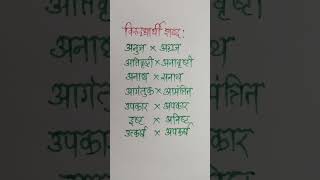 विरुद्धार्थी शब्द :
अनुज × अग्रज
अतिवृष्टी × अनावृष्टी
अनाथ × सनाथ
आगंतुक × आमंत्रित
उपकार × अपकार
इष्ट × अनिष्ट
उत्कर्ष × अपकर्ष